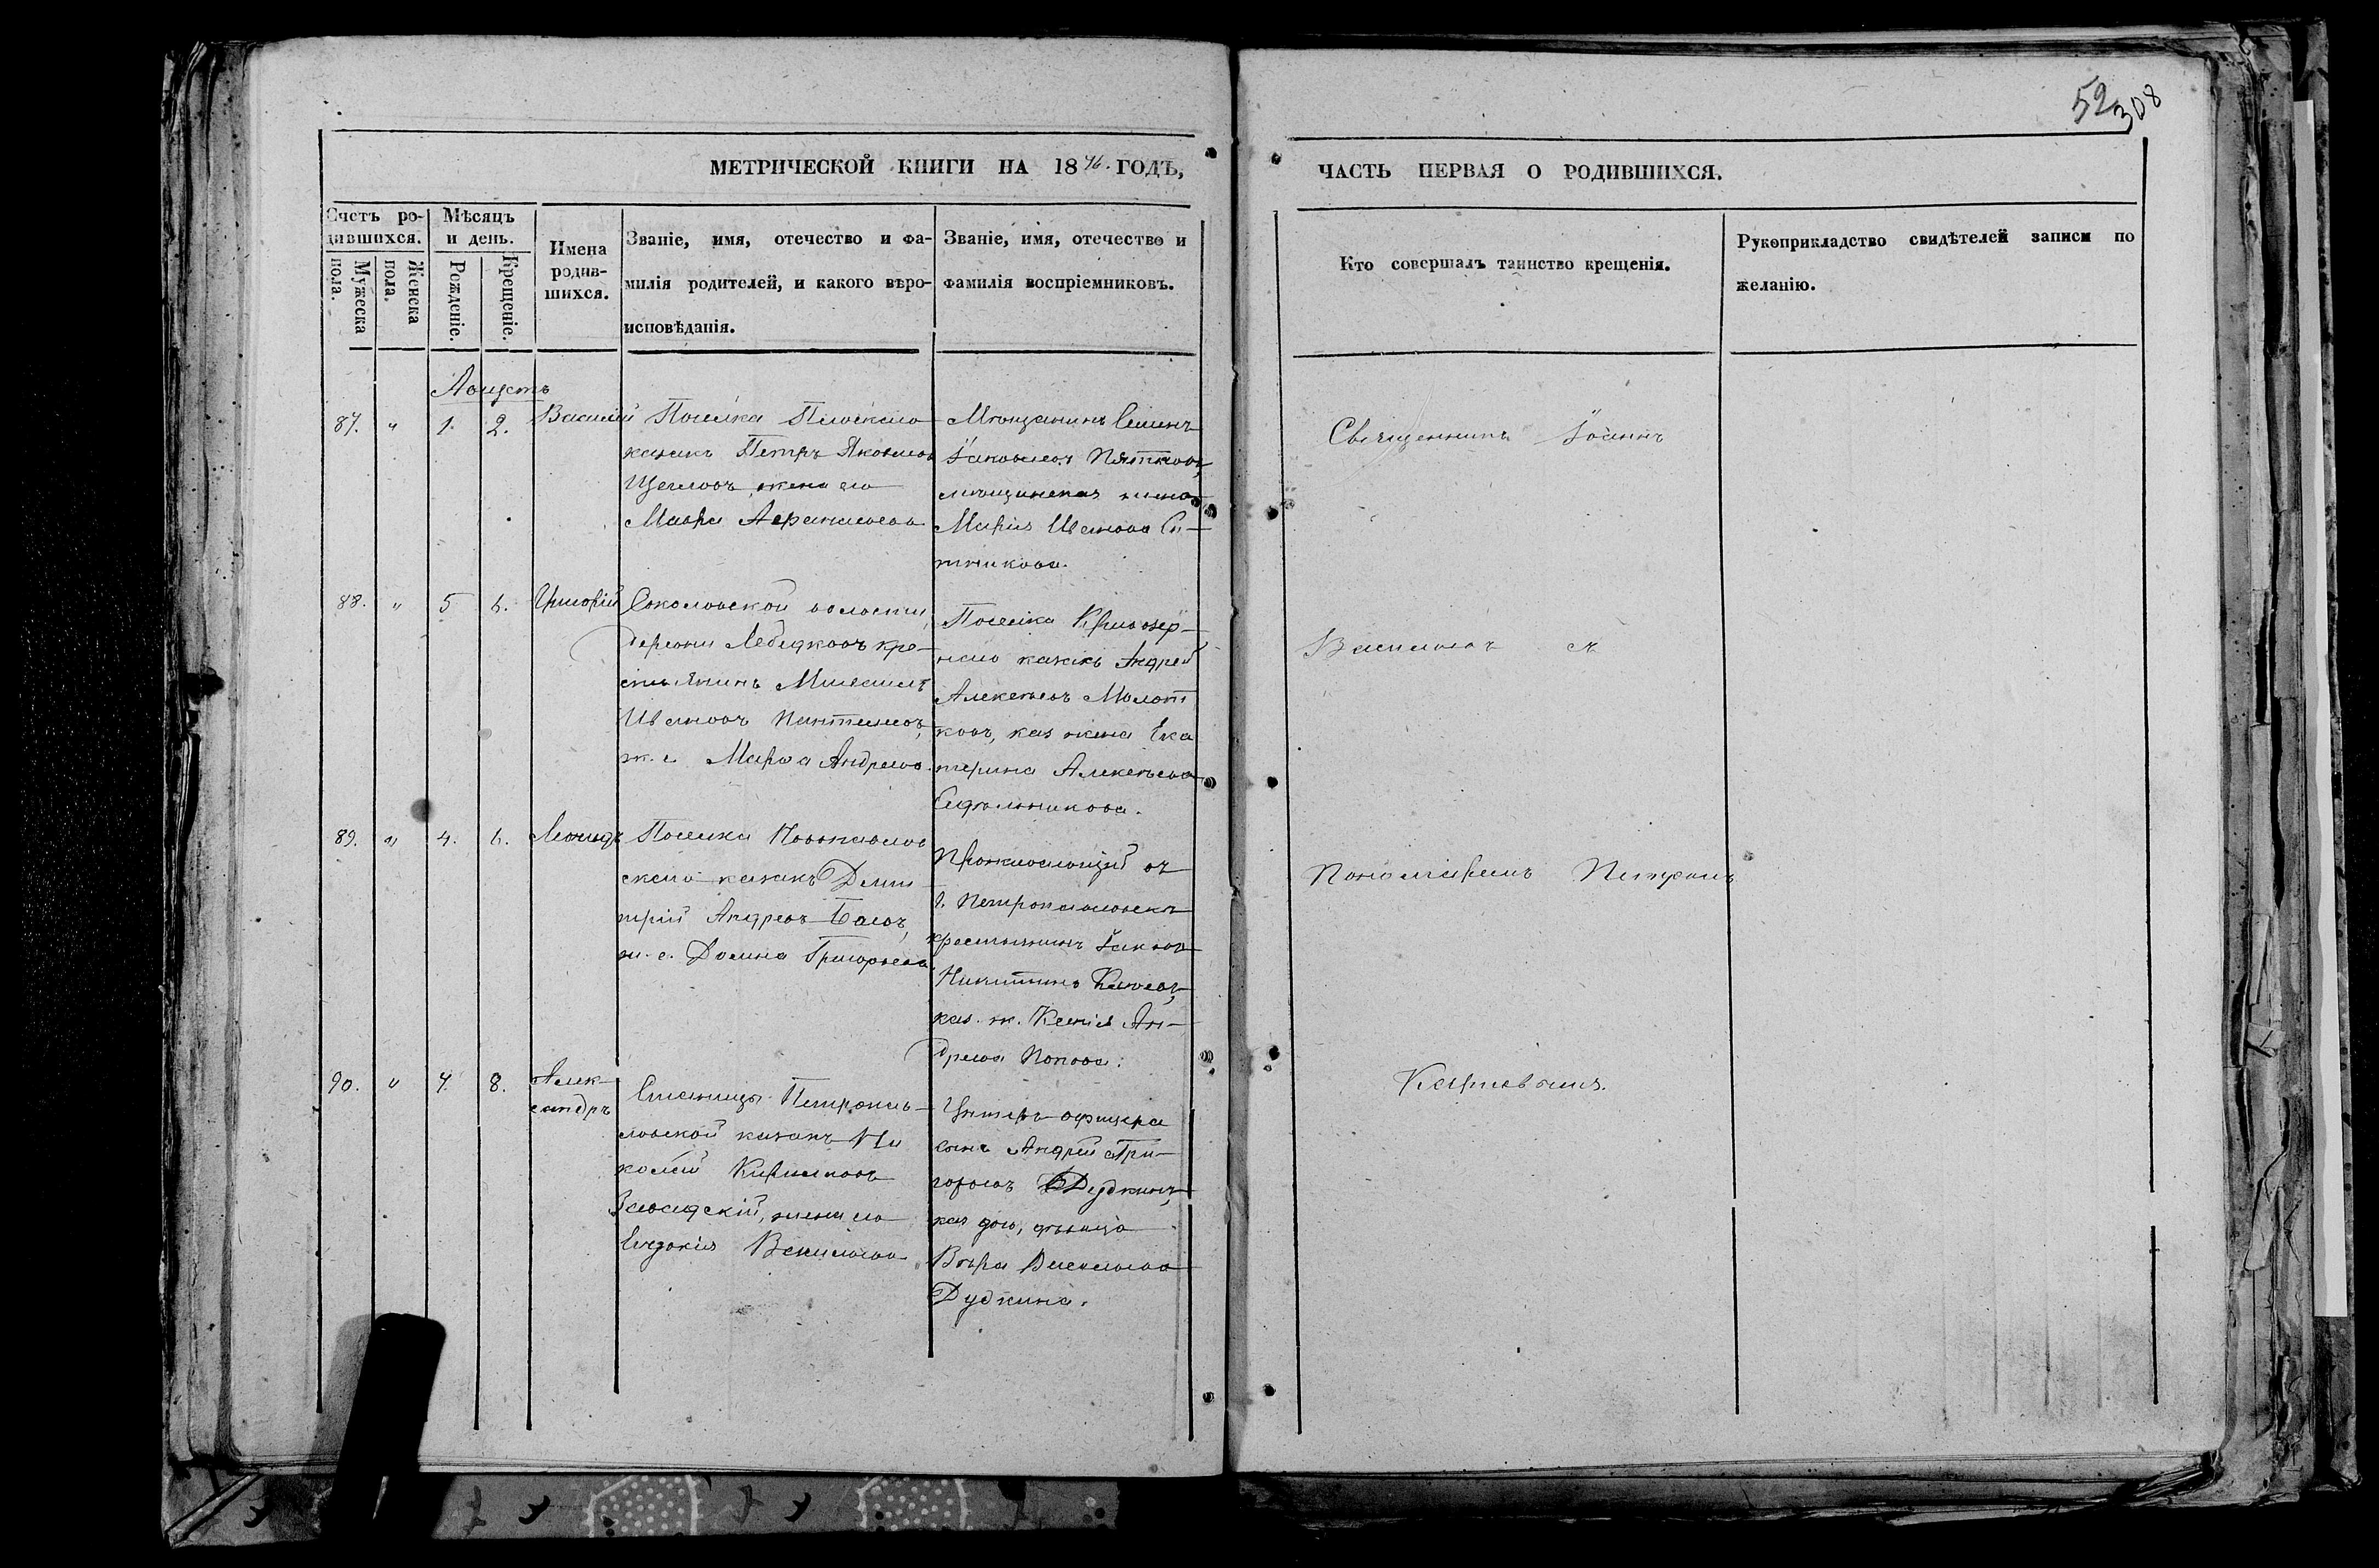 52 308
МЕТРИЧЕСКОЙ КНИГИ НА 1876. ГОДЪ,
ЧАСТЬ ПЕРВАЯ О РОДИВШИХСЯ.
Счетъ ро-
дившихся.
Мужеска
пола.
Женска
пола.
Мѣсяцъ
и день.
Рожденіе.
Крещеніе.
Имена
родив-
шихся.
Званіе, имя, отечество и фа-
милія родителей, и какого вѣро-
исповѣданія.
Званіе, имя, отечество и
фамилія воспріемниковъ.
Кто совершалъ таинство крещенія.
Рукоприкладство свидѣтелей записи по
желанію.
Августъ
87. " 1. 2. Василій
Поселка Плоскаго
казакъ Петръ Яковлевъ
Щегловъ, жена его
Мавра Афанасьева
Мѣщанинъ Семенъ
Іаковлевъ Пятковъ,
мѣщанская жена
Марія Иванова Си-
тникова.
Священникъ Іоаннъ
88. " 5 6. Григорій
Соколовской волости,
деревни Лебедковъ кре-
стьянинъ Михаилъ
Ивановъ Пантелеевъ,
ж. е. Марѳа Андреева.
Поселка Кривозер-
наго казакъ Андрей
Алексѣевъ Молот
ковъ, каз жена Ека
терина Алексѣева
Сидѣльникова.
Васильевъ съ
89. " 4. 6. Леонидъ
Поселка Новопавлов
скаго казакъ Дими
трій Андреевъ Баевъ,
ж. е. Домна Григорьева
Проживающій въ
г. Петропавловскѣ
крестьянинъ Іаковъ
Никитинъ
каз. ж. Ксенія Ан-
дреева Попова.
Пономаремъ Петромъ
90. " 7. 8. Алек-
сандръ
Станицы Петропав-
ловской казакъ Ни
колай Кириловъ
жена его
Евдокія Васильева
Унтеръ-офицера
сынъ Андрей Гри-
горьевъ Дудкинъ,
каз дочь, дѣвица
Вѣра Васильева
Дудкина.